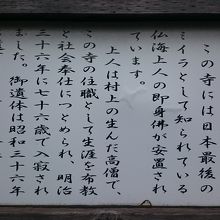 この寺には日本最後の
ミイラとして知られている
仏海上人の即身佛が安置され
ています。
上人は村上の生んだ高僧で、
この寺の住職として生涯を布教
と社会奉仕につとめられ、明治
三十六年に七十六歳で入寂され
ました。御遺体は昭和三十六年